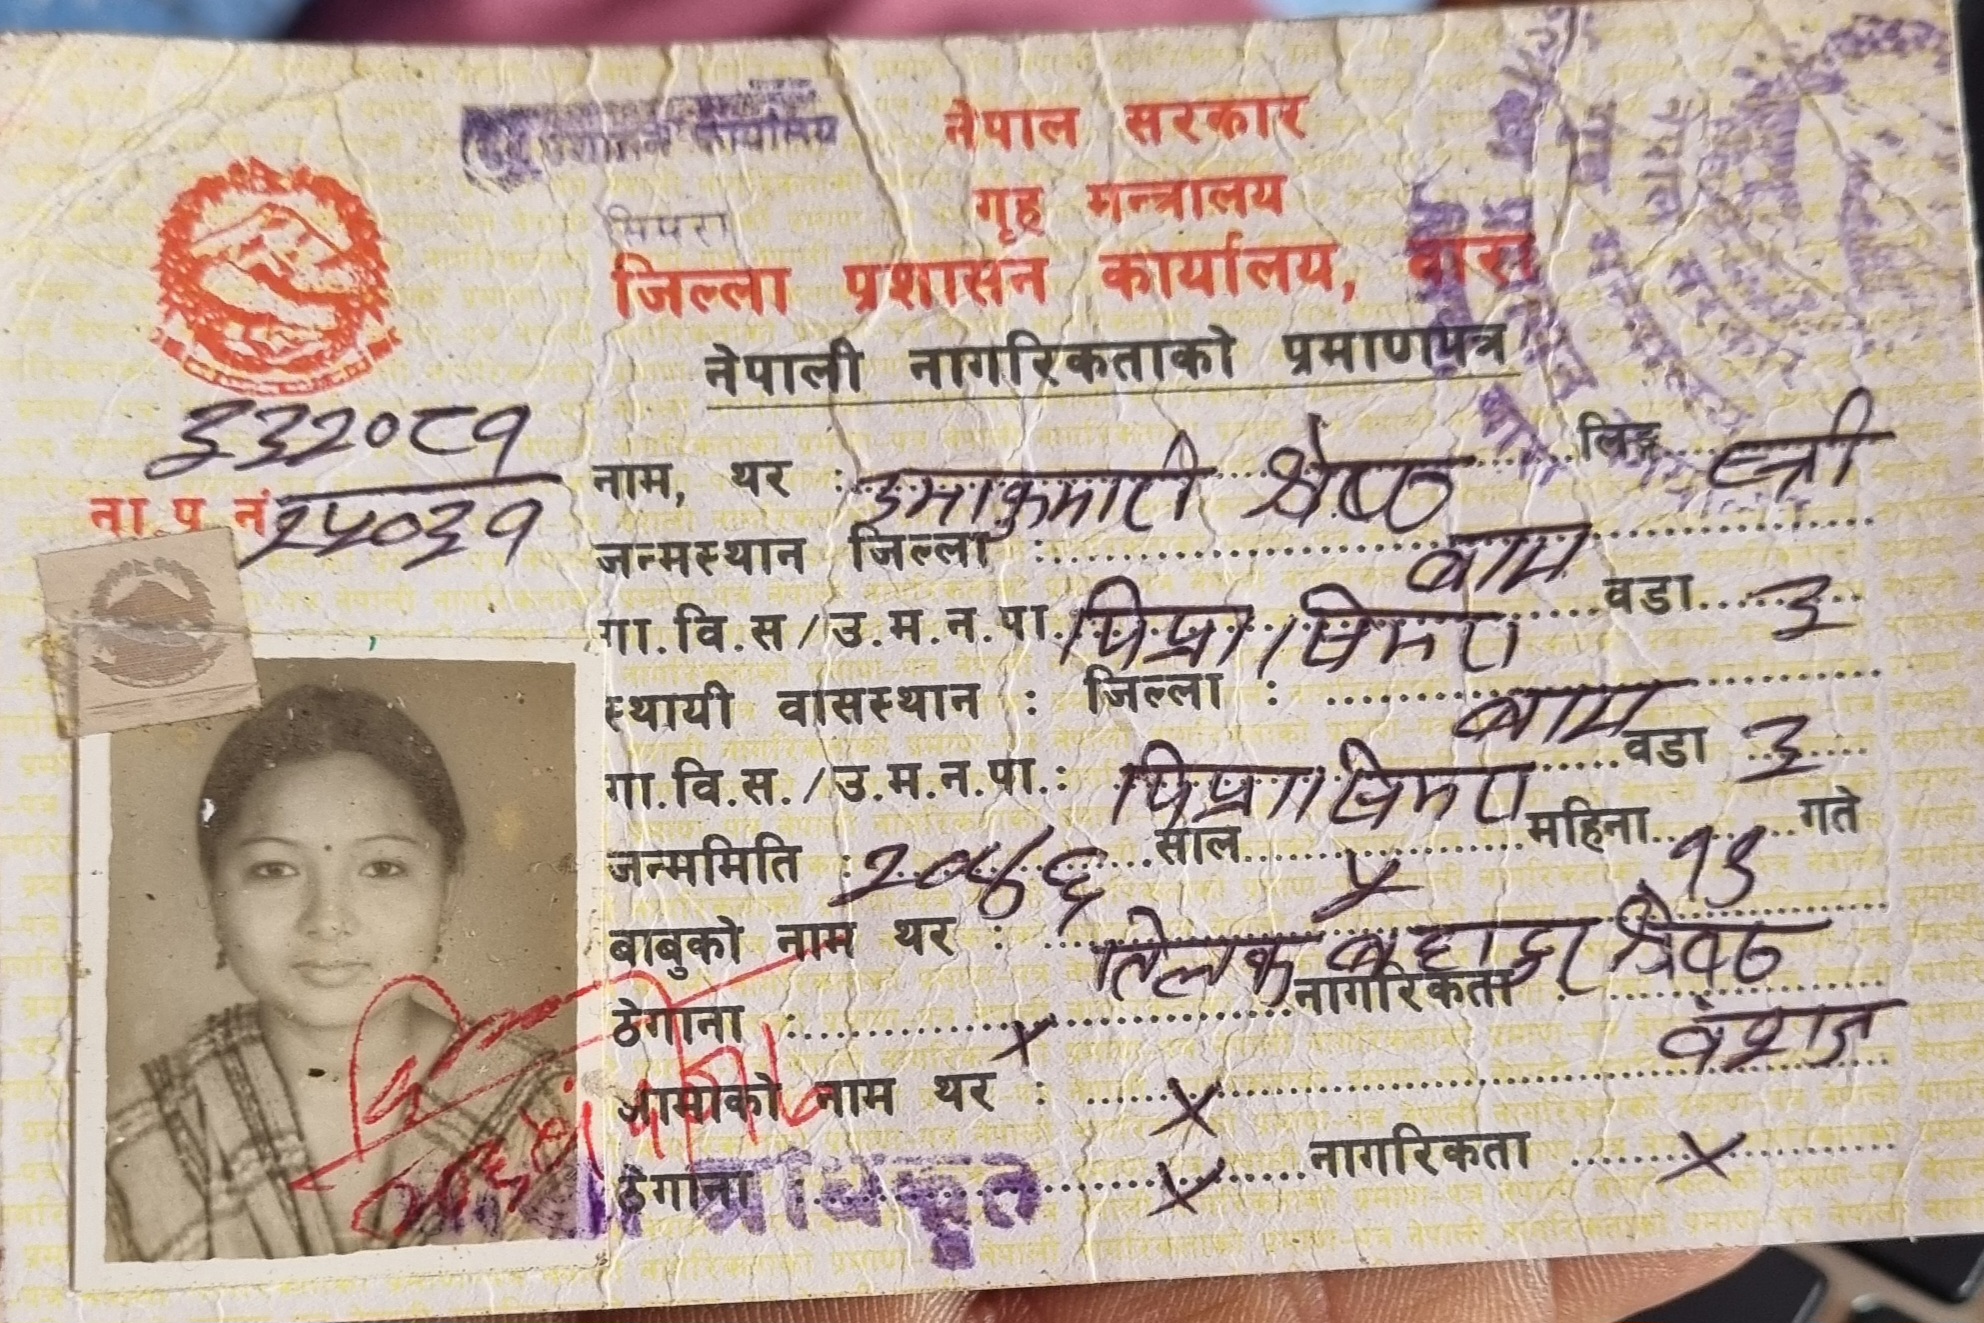 नेपाल सरकार
प्रशासन कार्यालय
गृह मन्त्रालय
सिमरा
जिल्ला प्रशासन कार्यालय, बारा
नेपाली नागरिकताको प्रमाणपत्र
३३२०८१
ना.प्र.नं. २५०३१
नाम, थर : उमाकुमारी श्रेष्ठ लिङ्ग स्त्री
जन्मस्थान जिल्ला : बारा
गा.वि.स/उ.म.न.पा. पिप्रा सिमरा वडा ३
स्थायी वासस्थान : जिल्ला : बारा
गा.वि.स./उ.म.न.पा.: पिप्रा सिमरा वडा ३
जन्ममिति : २०४६ साल ५ महिना १३ गते
बाबुको नाम थर : तिलक बहादुर श्रेष्ठ
ठेगाना : x नागरिकता : वंशज
आमाको नाम थर : x
ठेगाना : x नागरिकता x